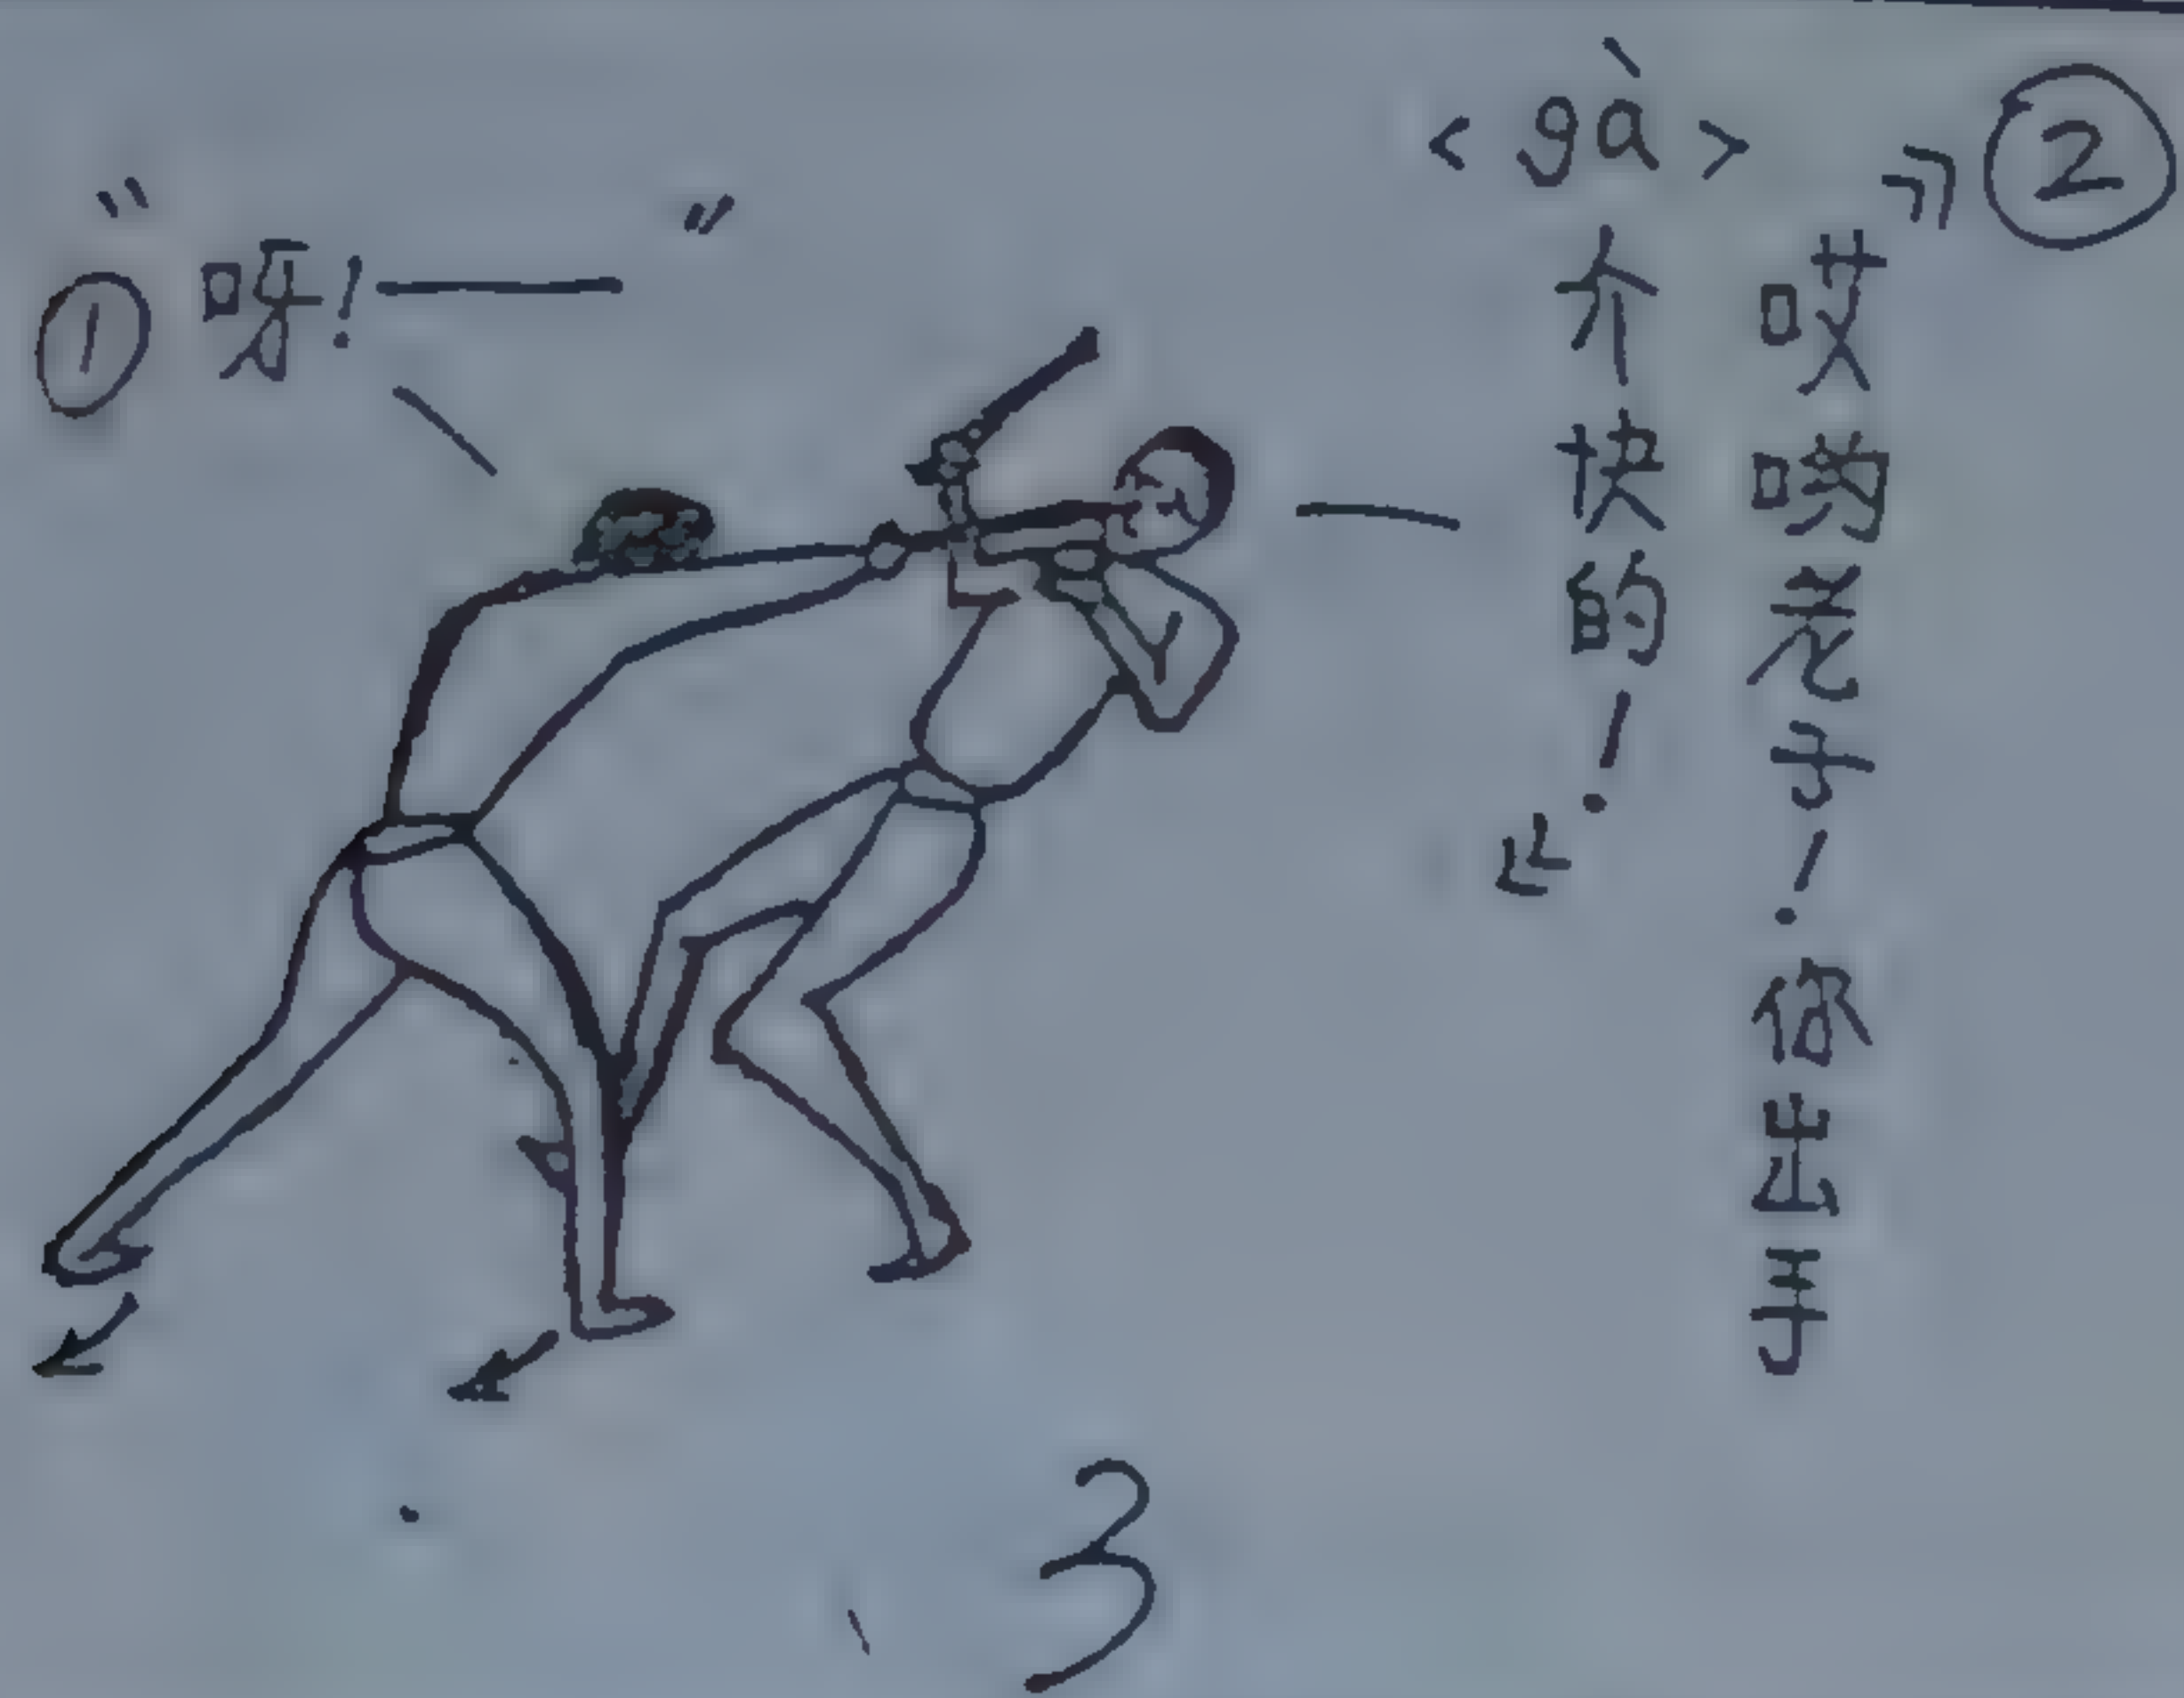 ① “呀！——”
② 『哎哟老子！你出手
<gà>
介快的！』
3